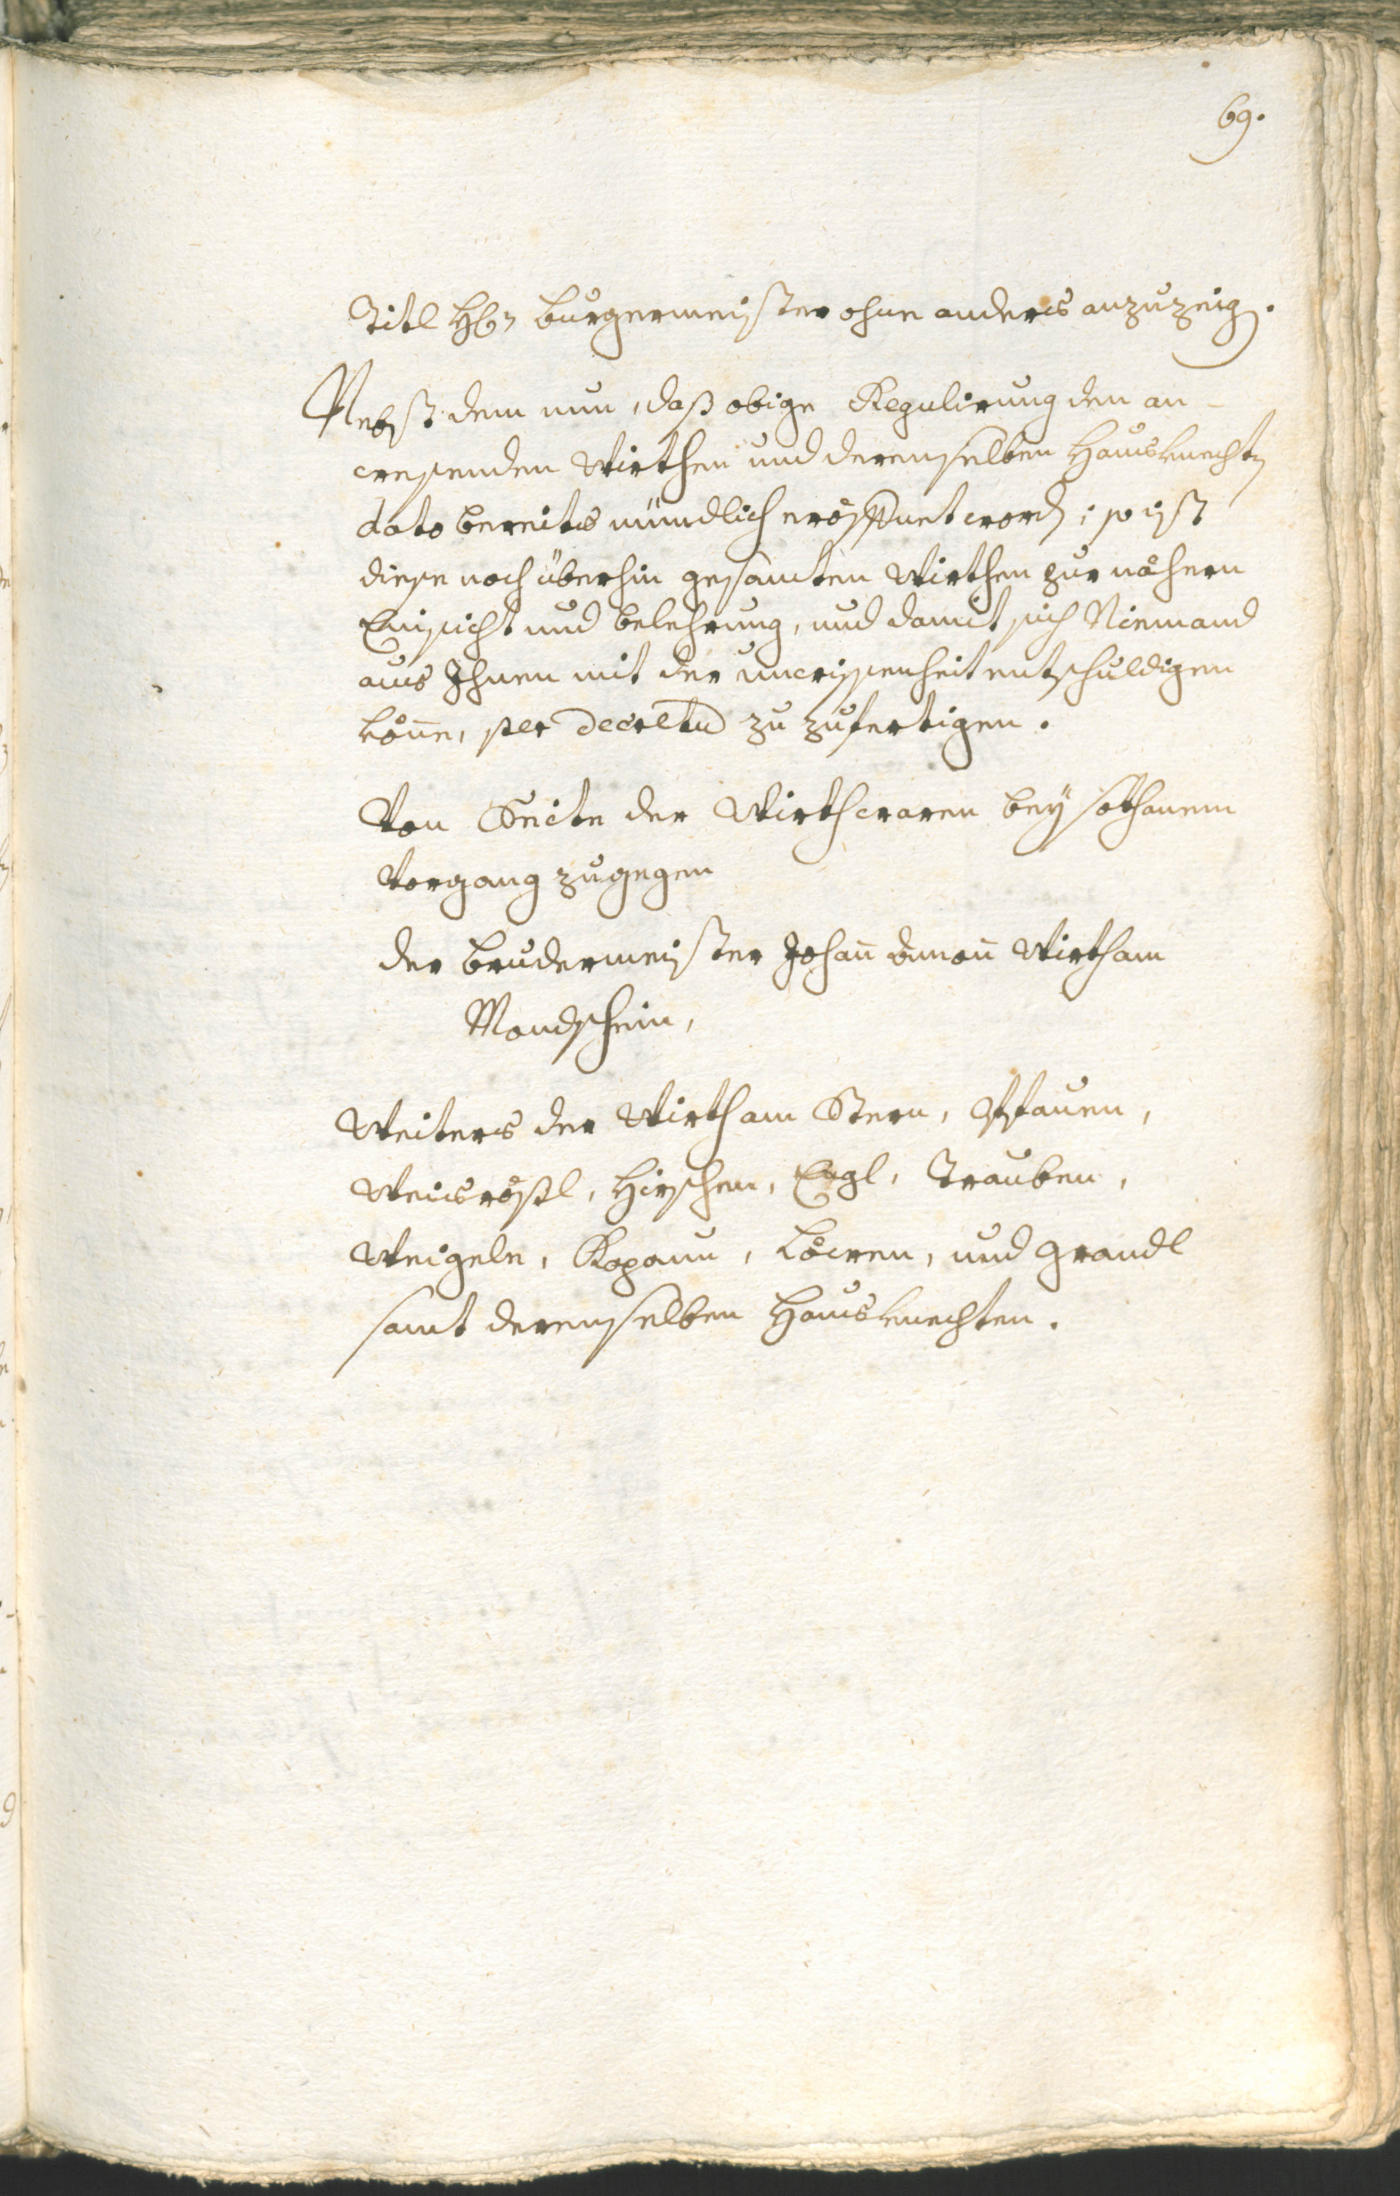 69.
Titl H: Burgermeister ohne anders anzuzeig.
Nebst deme nun, daß obige Regulirung den an-
wesenden Wirthen und derenselben Hausknecht
dato bereits mündlich eröffnet word; so ist
diese noch überhin gesamten Wirthen zur nähern
Einsicht und belehrung, und damit sich Niemand
aus Ihnen mit der unwissenheit entschuldigen
könne, per Decretu zu zufertigen.
Von Seite der Wirth waren bey sothanem
Vorgang zugegen
der brudermeister Johan Wirth am
Mondschein,
Weiters der Wirth am Stern, Pfauen,
Weisrößl, Hirschen, Engl, Trauben,
Weigele, Kapaun, Löwen, und Grandl
samt derenselben Hausknechten.